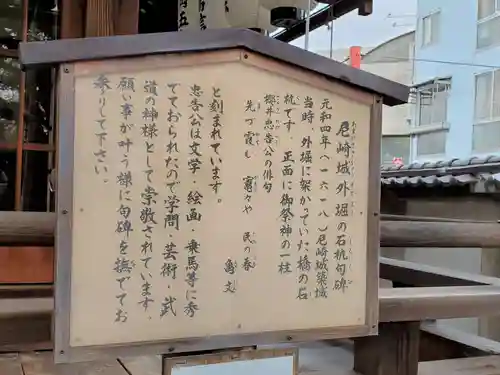 尼崎城外堀の石杭句碑
元和四年(一六一八)尼崎城築城
当時、外堀に架かっていた橋の石
杭です。正面に御祭神の一柱
桜井忠告公の俳句
先丁霞も
民の春
亀文
と刻まれています。
忠告公は文学・絵画・乗馬等に秀
でておられたので学問・芸術・武
道の神様として崇敬されています
願い事が叶う様に句碑を撫でてお
参りして下さい。